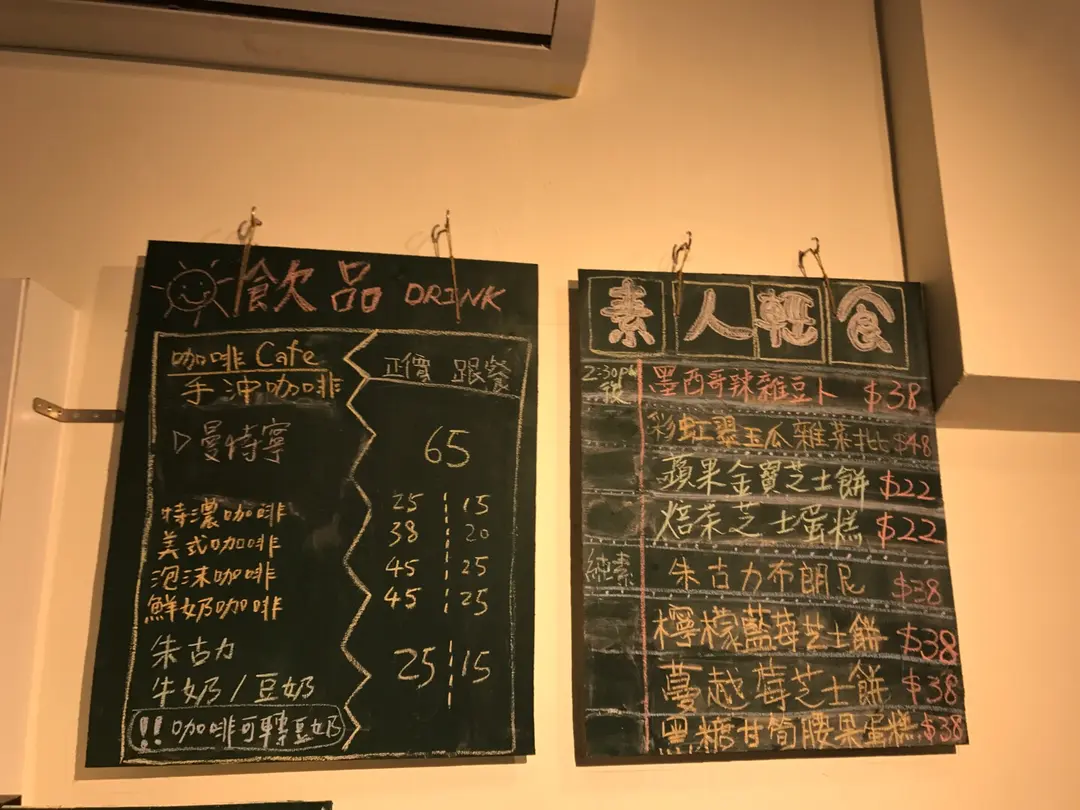 飲品 DRINK
咖啡 Cafe 正價 跟餐
手沖咖啡
▷曼特寧 65
特濃咖啡 25 15
美式咖啡 38 20
泡沫咖啡 45 25
鮮奶咖啡 45 25
朱古力
牛奶/豆奶 25 15
!! 咖啡可轉豆奶
素人輕食
2:30pm後 墨西哥辣雜豆卜 $38
彩虹翠玉瓜雜菜批 $48
蘋果金寶芝士餅 $22
焙茶芝士蛋糕 $22
純素 朱古力布朗尼 $38
檸檬藍莓芝士餅 $38
蔓越莓芝士餅 $38
黑糖甘筍腰果蛋糕 $38